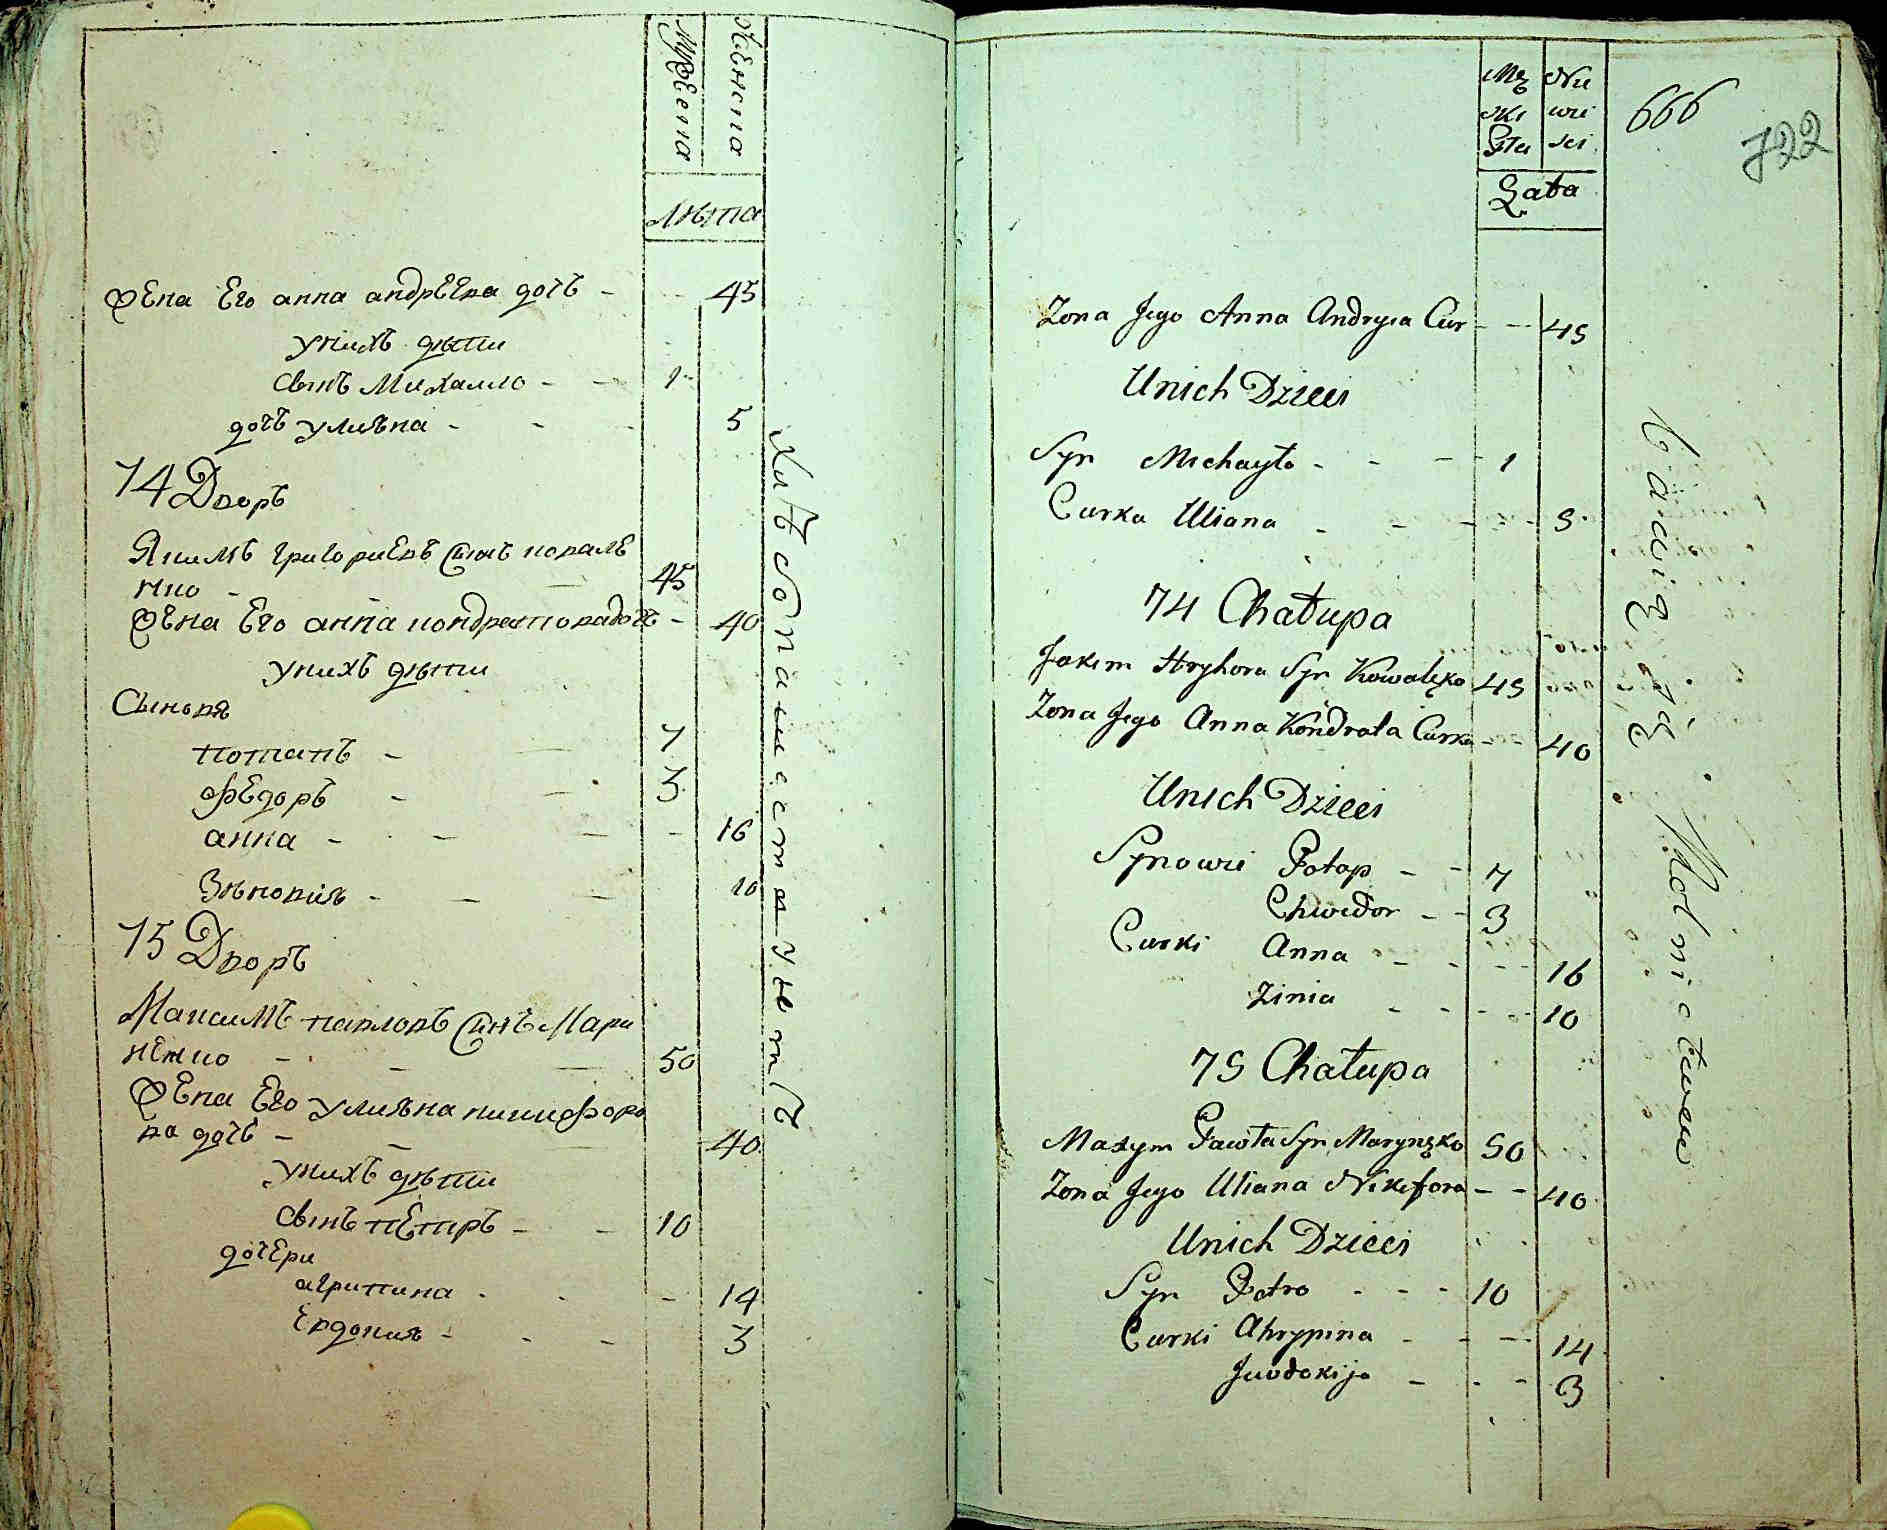 Мужеска
Женска
Лѣта
жена Его анна андрЕЕва дочъ - - 45
унихъ дѣти
сынъ Михаило - - 1
дочъ улияна - - - 5
74 Дворъ
Якимъ григориЕвъ сынъ ковалЕ
нко - 45
жЕна Его анна кондратова дочъ - 40
унихъ дѣти
Сыновя
потапъ - 7
фЕдоръ - 3
анна - - - - 16
Зѣновия - - - 10
75 Дворъ
Максимъ павловъ сынъ Мари
нЕнко - - - 50
жЕна Его улияна никифоро
ва дочъ - - - 40
унихъ дѣти
сынъ пЕтръ - - 10
дочЕри
агрипина - - - 14
Евдокия - - - 3
Хлѣбопашествуютъ
Męz Nie
ski wie
Płci sci
Lata
666
722
Zona Jego Anna Andryia Cur - - 45
Unich Dzieci
Syn Michayło - - - 1
Curka Uliana - - - - 5
74 Chałupa
Jakim Hryhora Syn Kowalęko 45
Zona Jego Anna Kondrata Curka - - 40
Unich Dzieci
Synowie Potap - - 7
Chwedor - - 3
Curki Anna - - - - 16
Zinia - - - - 10
75 Chałupa
Maxym Pawła Syn Marynęko 50
Zona Jego Uliana Nikifora - - 40
Unich Dzieci
Syn Petro - - - 10
Curki Ahrypina - - - 14
Jewdokija - - - 3
bawią się Rolnictwem